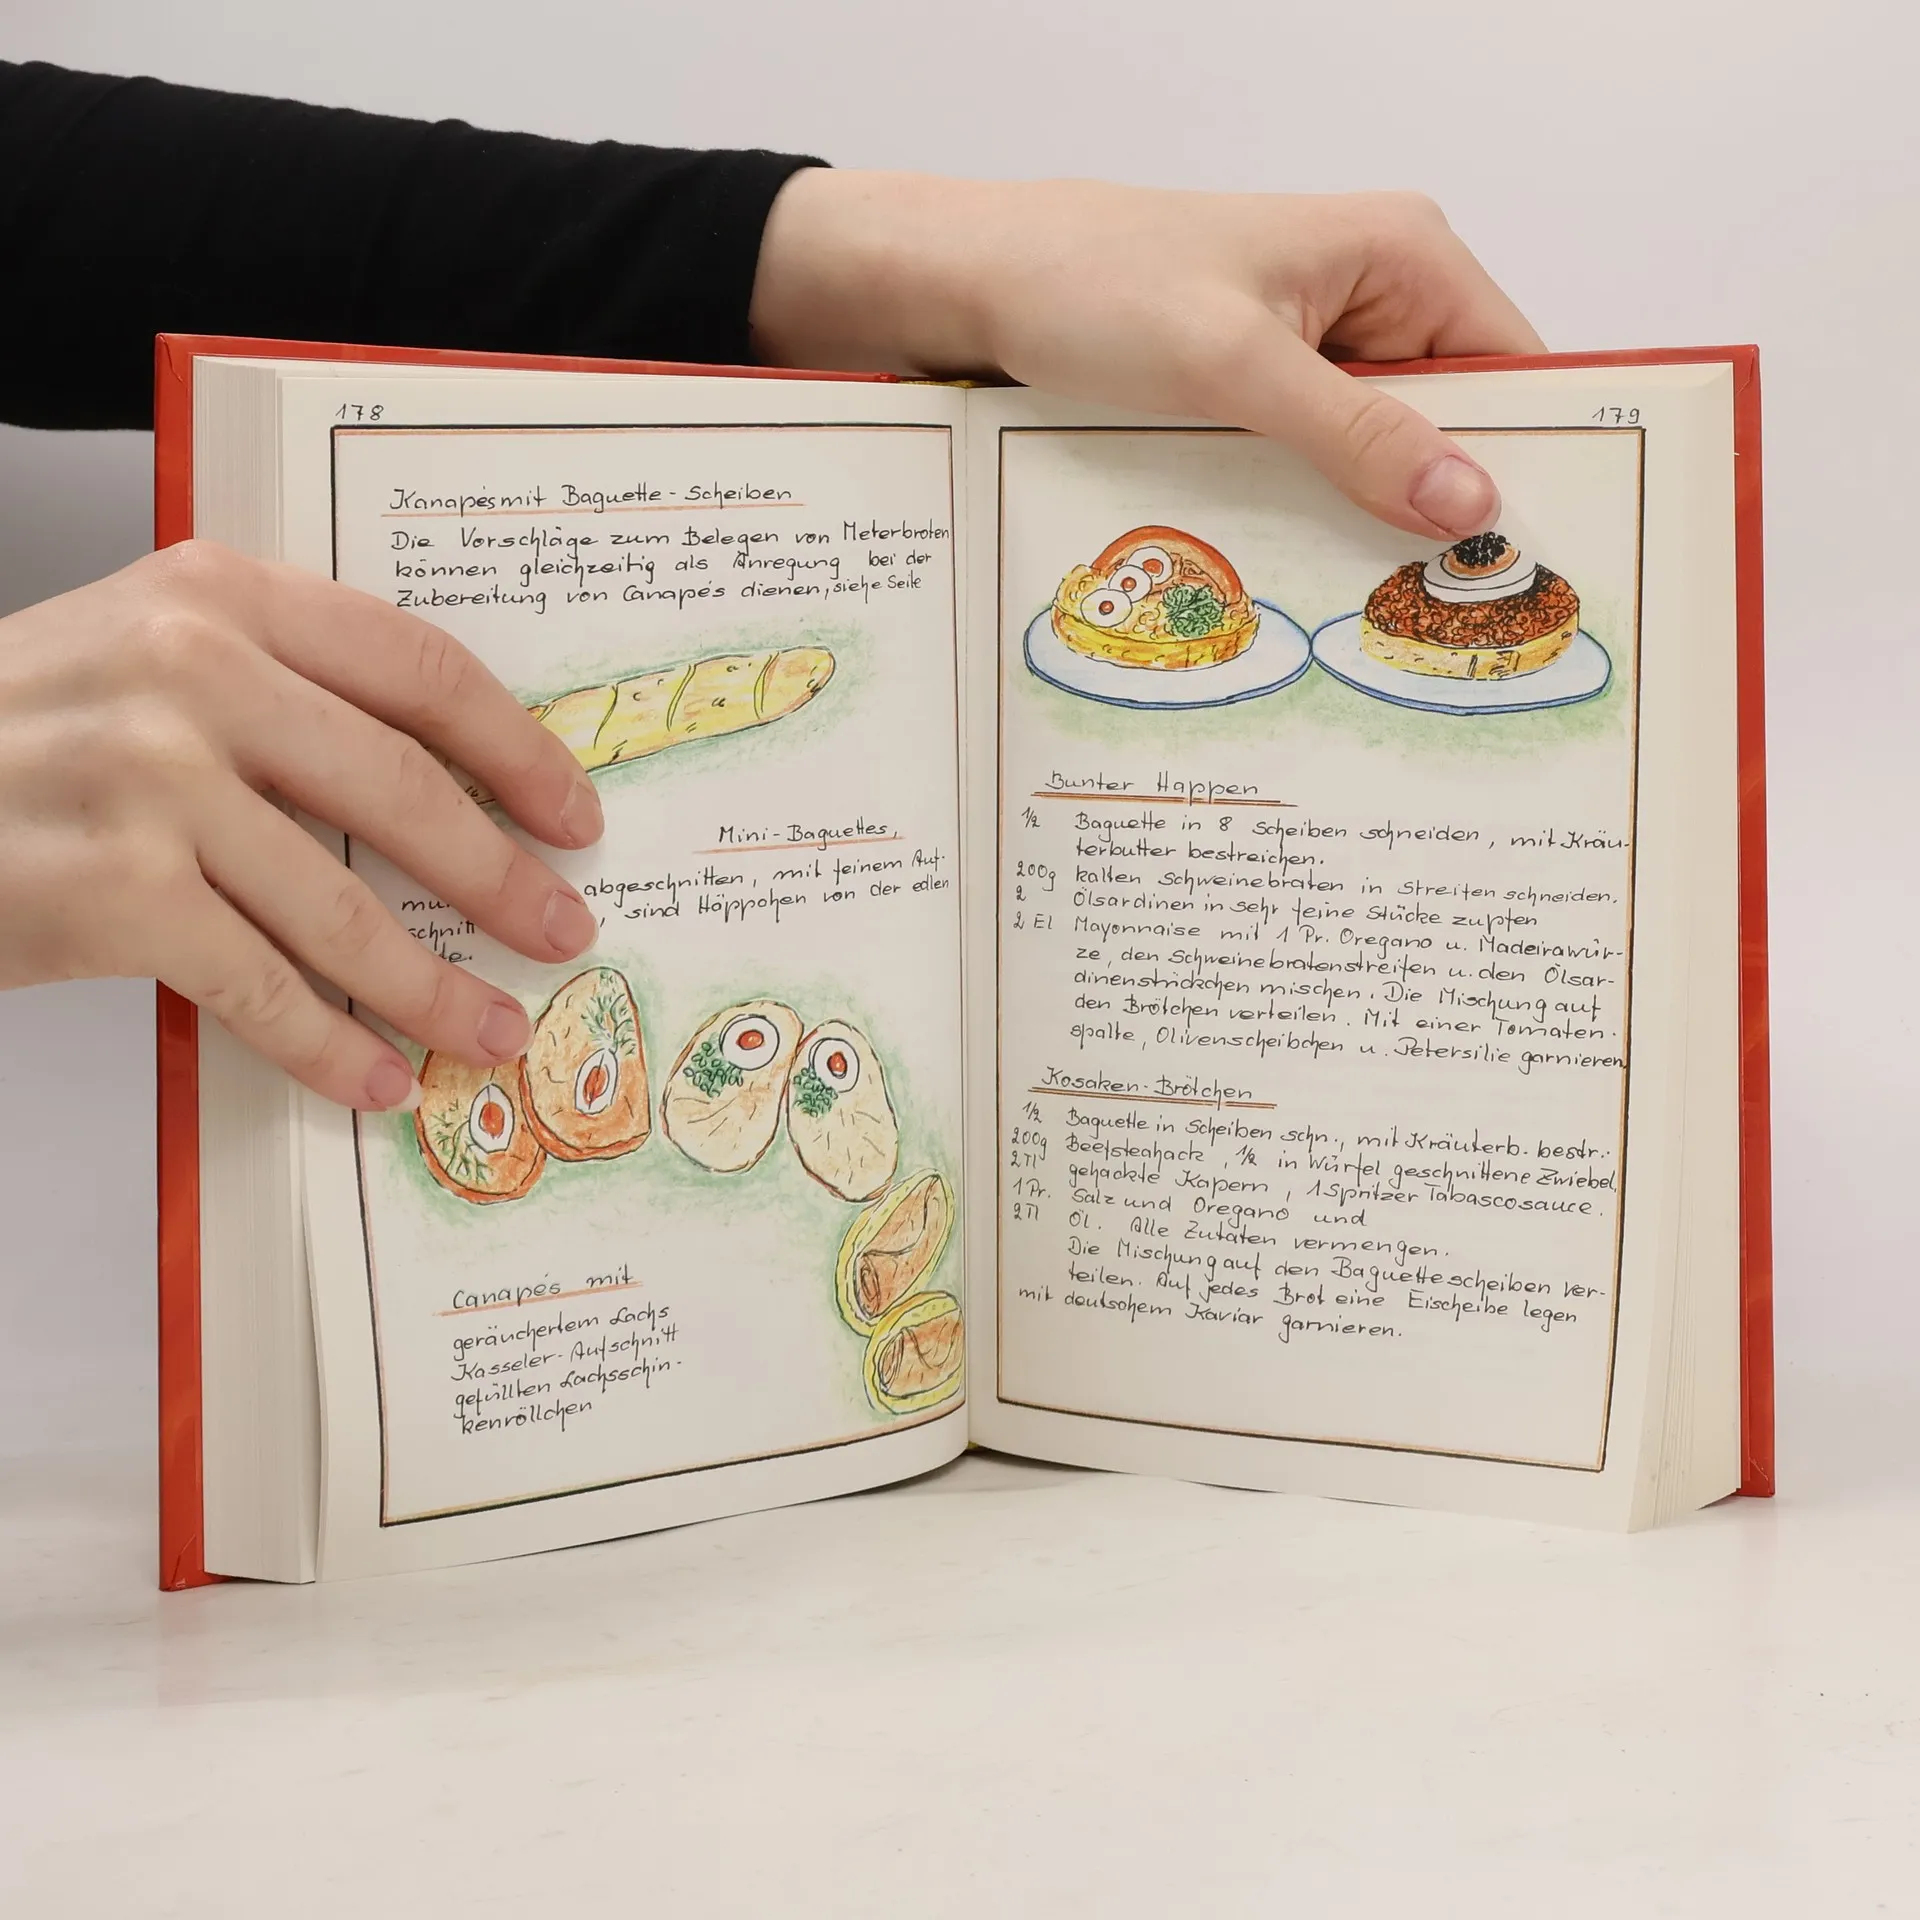 178
Kanapés mit Baguette - Scheiben
Die Vorschläge zum Belegen von Meterbroten
können gleichzeitig als Anregung bei der
Zubereitung von Canapés dienen, siehe Seite
Mini - Baguettes,
abgeschnitten, mit feinem Auf-
schnitt , sind Häppchen von der edlen
Canapés mit
geräuchertem Lachs
Kasseler - Aufschnitt
gefüllten Lachsschin-
kenröllchen
179
Bunter Happen
1/2 Baguette in 8 Scheiben schneiden, mit Kräu-
terbutter bestreichen.
200g kalten Schweinebraten in Streifen schneiden.
2 Ölsardinen in sehr feine Stücke zupfen
2 El Mayonnaise mit 1 Pr. Oregano u. Madeirawür-
ze, den Schweinebratenstreifen u. den Ölsar-
dinenstückchen mischen. Die Mischung auf
den Brötchen verteilen. Mit einer Tomaten-
spalte, Olivenscheibchen u. Petersilie garnieren
Kosaken-Brötchen
1/2 Baguette in Scheiben schn., mit Kräuterb. bestr.
200g Beefsteahack, 1/2 in Würfel geschnittene Zwiebel,
2 Tl gehackte Kapern, 1 Spritzer Tabascosauce.
1 Pr. Salz und Oregano und
2 Tl Öl. Alle Zutaten vermengen.
Die Mischung auf den Baguettescheiben ver-
teilen. Auf jedes Brot eine Eischeibe legen
mit deutschem Kaviar garnieren.